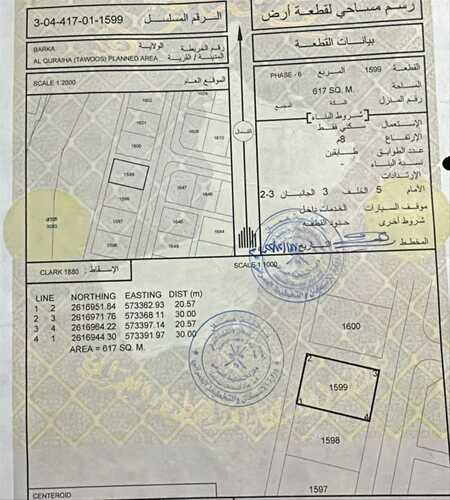 رسم مساحي لقطعة أرض
الرقم المسلسل
3-04-417-01-1599
بيانات القطعة
الولاية
BARKA
رقم الخريطة
المدينة / القرية
AL QURAIHA (TAWOOS) PLANNED AREA
القطعة 1599 المربع PHASE - 6
المساحة 617 SQ. M.
رقم المنزل السكة المجمع
SCALE 1:2000
الموقع العام
شروط البناء
الإستعمال سكني فقط
الإرتفاع 8م
عدد الطوابق طابقين
نسبة البناء -
الإرتدادات
الأمام 5 الخلف 3 الجانبان 2-3
موقف السيارات الخدمات داخل
شروط أخرى حدود القطعة
المخطط التاريخ
الشمال
1602
1601
1600
1599
1598
1597
1596
1595
1640
1647
1646
1645
1644
1643
CLARK 1880
الإسقاط:
SCALE 1:1000
LINE NORTHING EASTING DIST (m)
1 2 2616951.84 573362.93 20.57
2 3 2616971.76 573368.11 30.00
3 4 2616964.22 573397.14 20.57
4 1 2616944.30 573391.97 30.00
AREA = 617 SQ. M.
1600
2
3
1599
1
4
1598
1597
CENTEROID